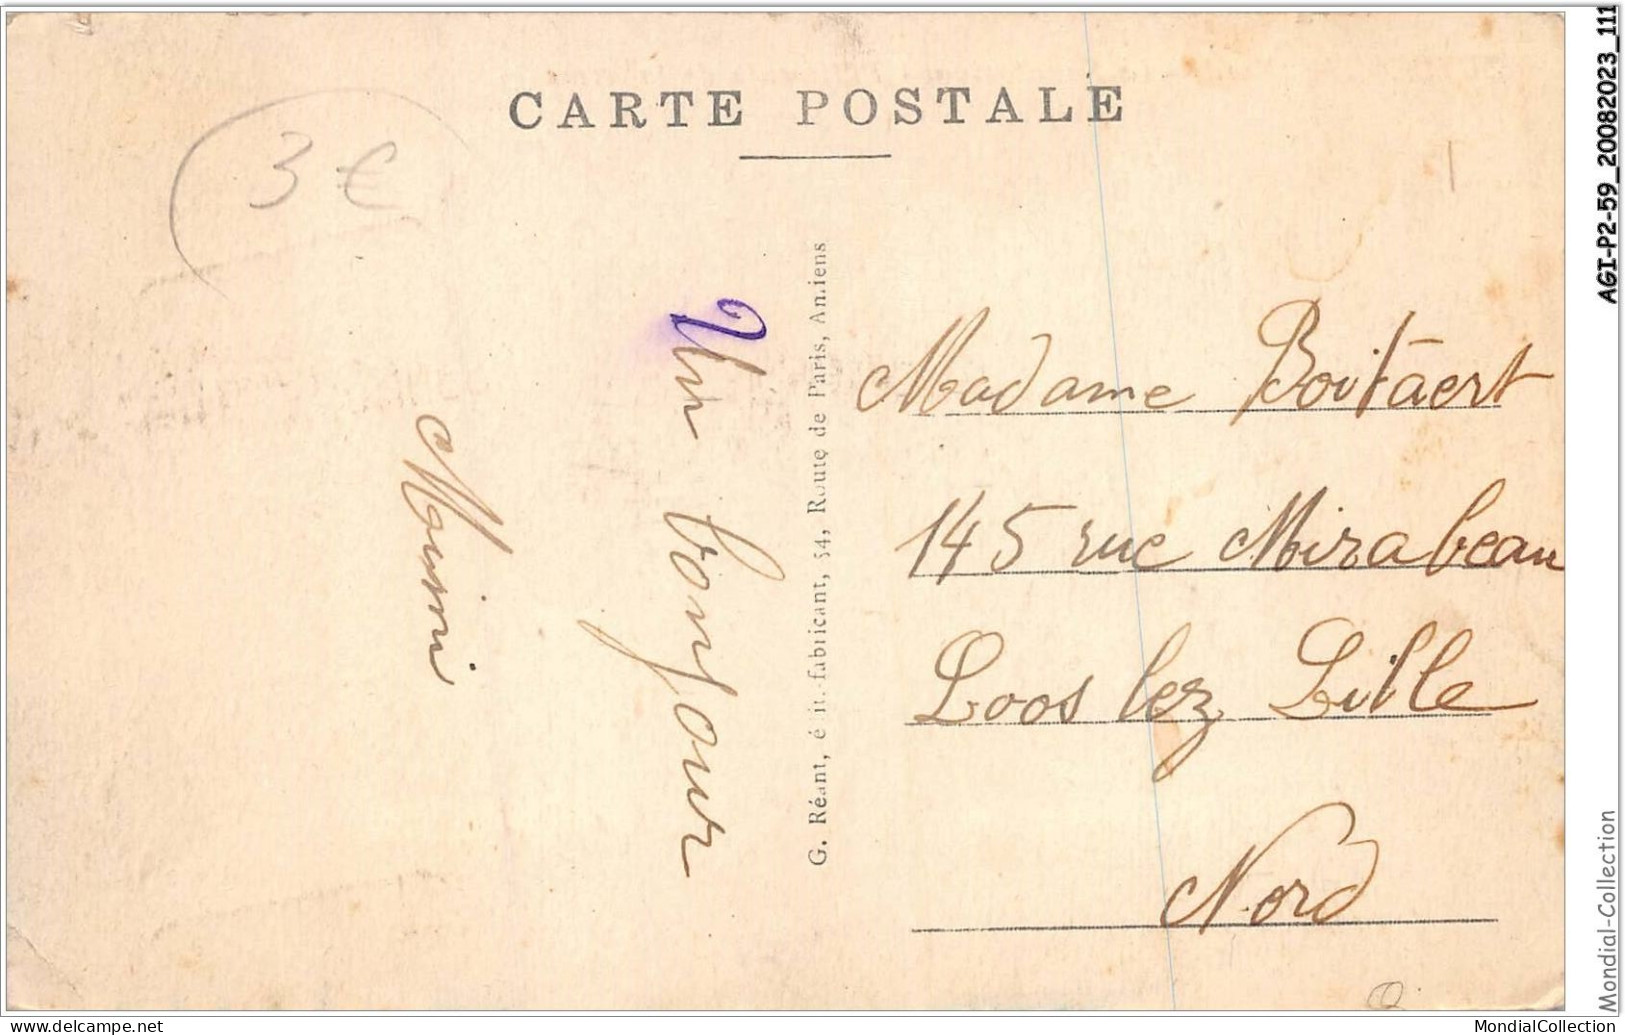 CARTE POSTALE
3 €
Un bonjour
G. Réant, édit.-fabricant, 54, Route de Paris, Amiens
Madame Boitaert
145 rue Mirabeau
Loos lez Lille
Nord
AGI-P2-59_20082023_111
Mondial-Collection
www.delcampe.net
MondialCollection